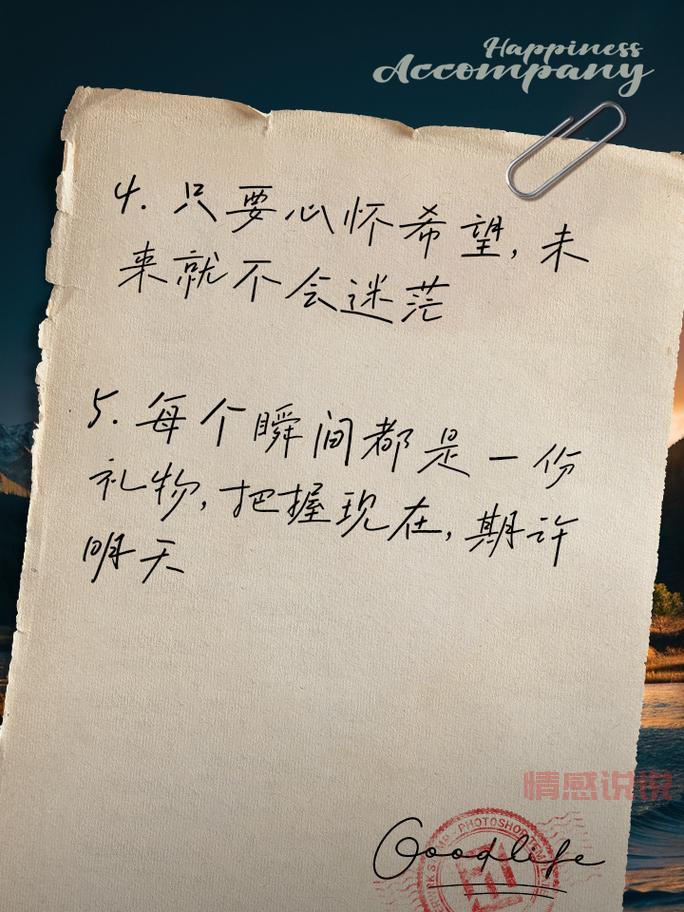 Happiness
Accompany
4. 只要心怀希望,未
来就不会迷茫
5. 每个瞬间都是一份
礼物,把握现在,期许
明天
情感说说
PHOTOSHOP
Goodlife